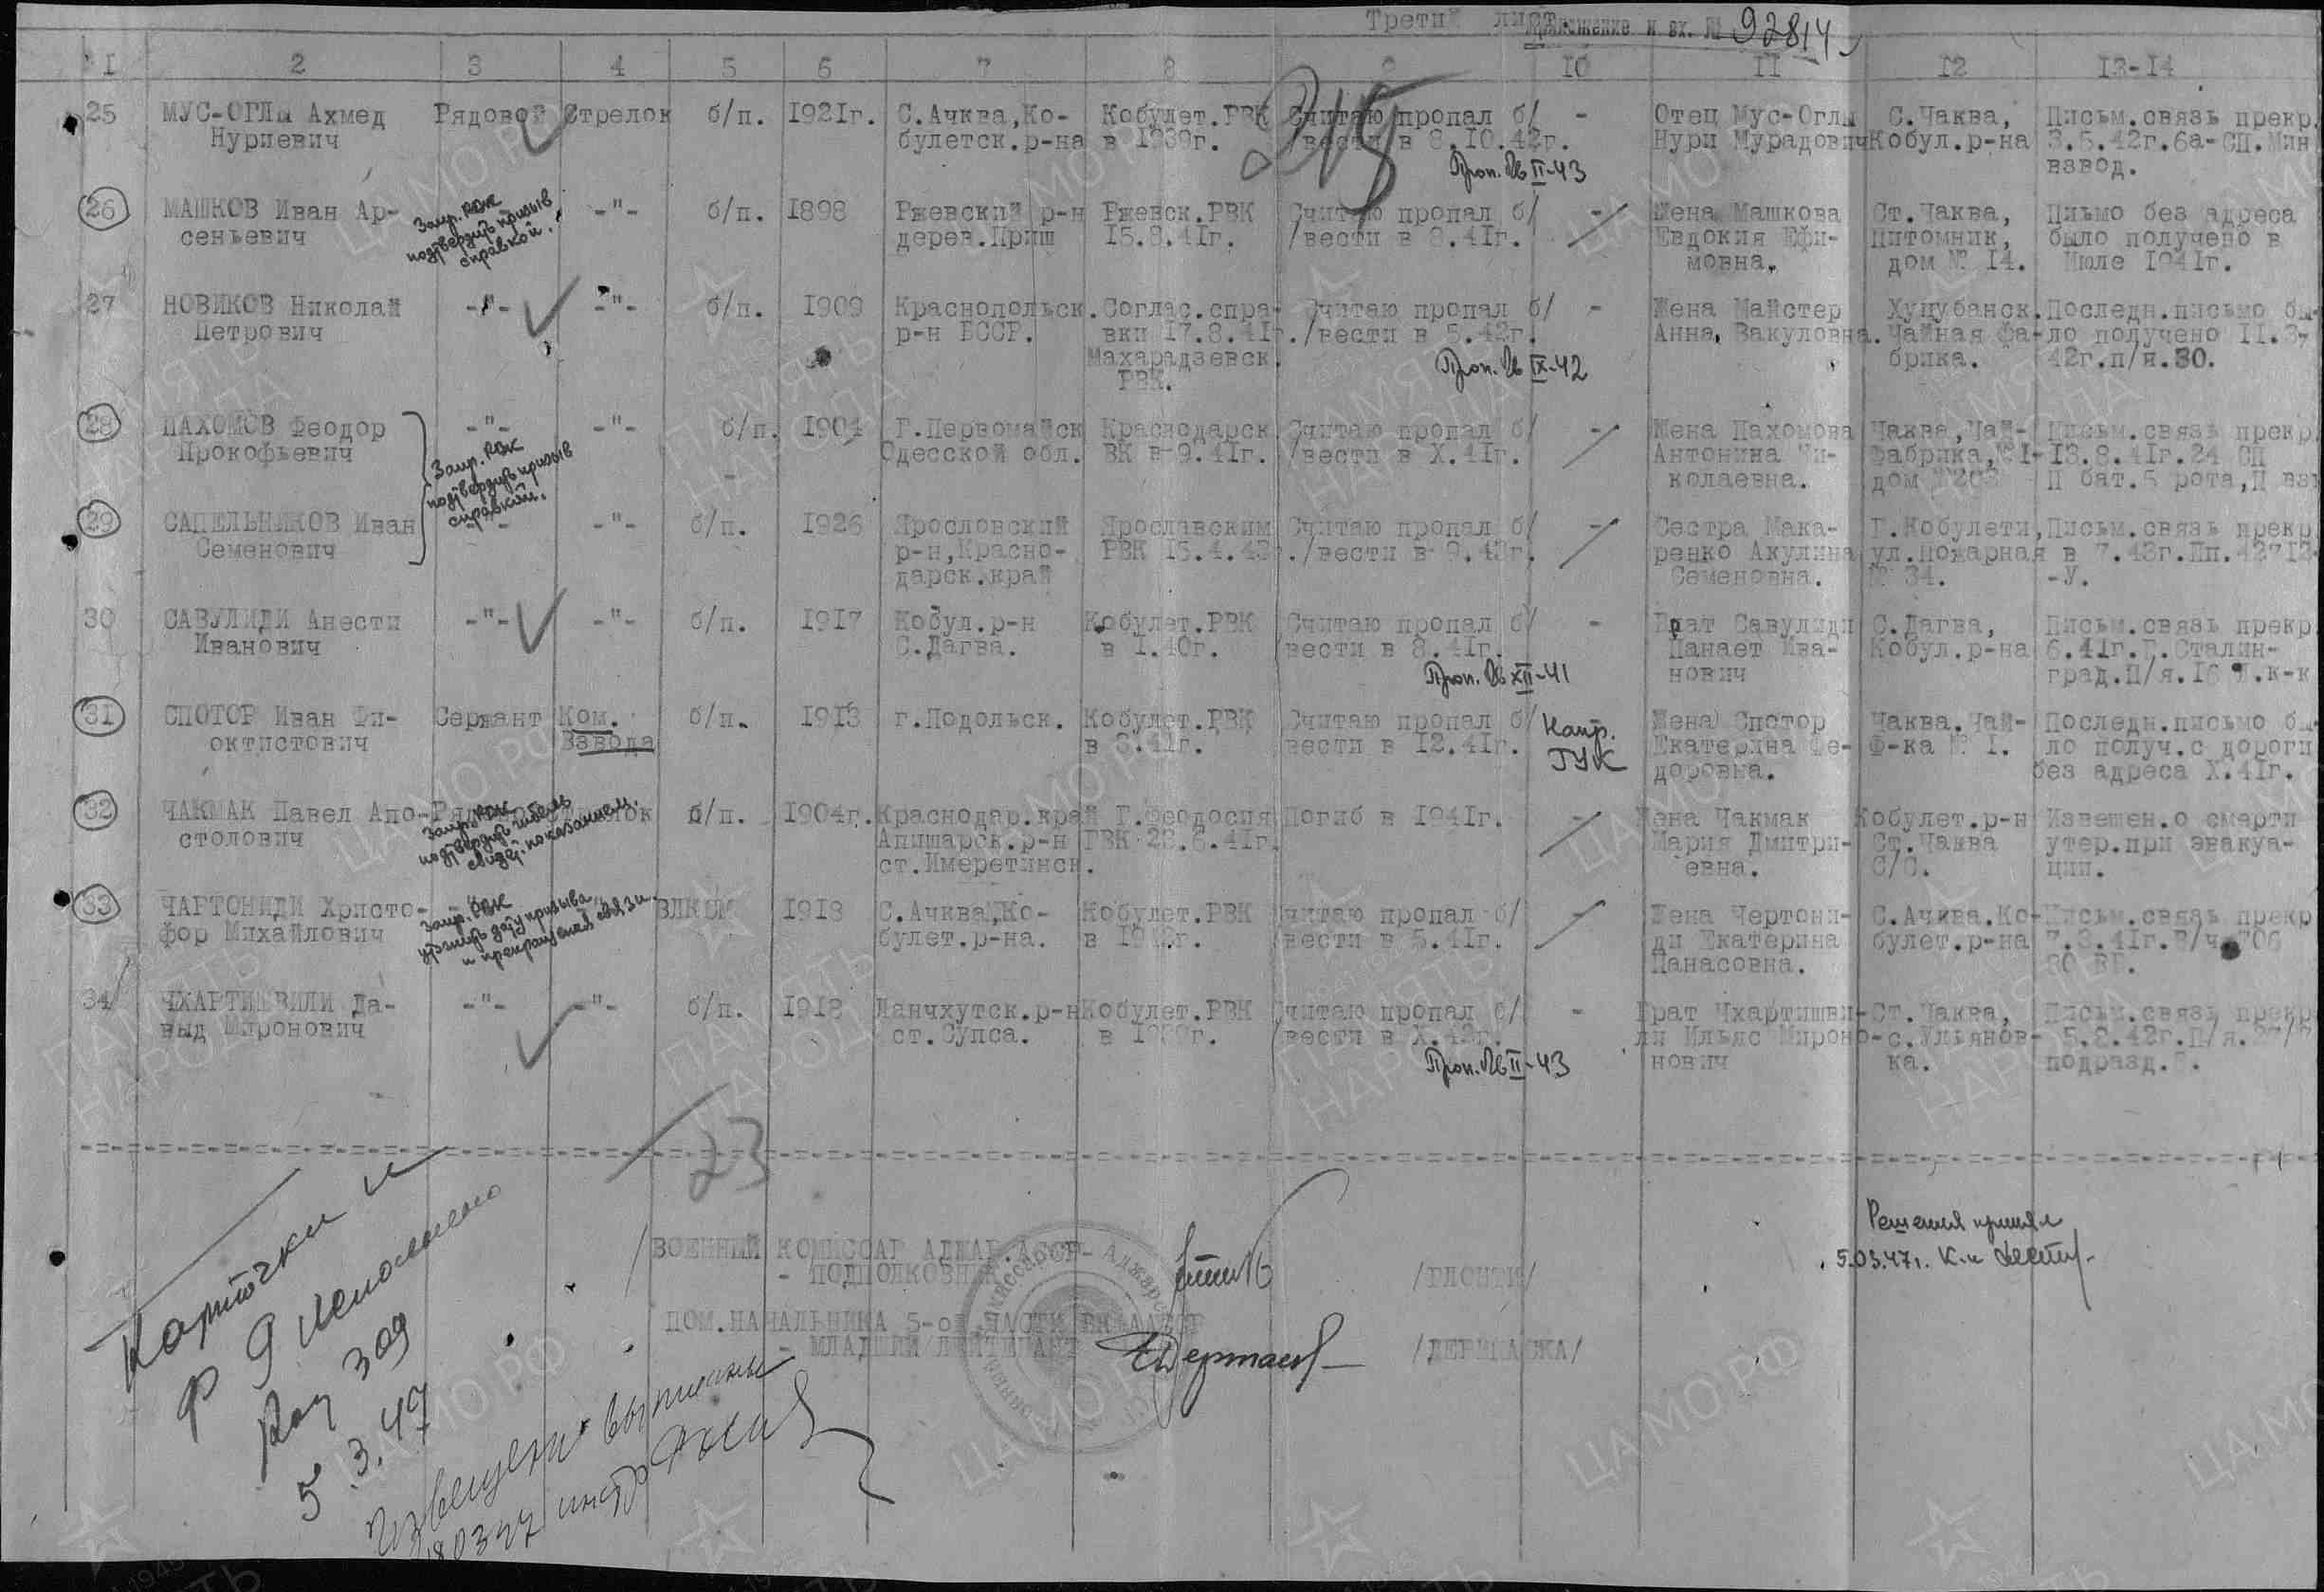 Третий лист.
Приложение к вх. № 92814
1 2 3 4 5 6 7 8 9 10 11 12 13-14
215
25 МУС-ОГЛЫ Ахмед Рядовой Стрелок б/п. 1921г. С.Ачква,Ко- Кобулет.РВК Считаю пропал б/ - Отец Мус-Оглы С.Чаква, Письм.связь прекр.
Нуриевич булетск.р-на в 1939г. /вести в 8.10.42г. Нури Мурадович Кобул.р-на 3.5.42г.6а-СП.Мин
взвод.
Проп. б/в II-43
26 МАШКОВ Иван Ар- -"- б/п. 1898 Ржевский р-н Ржевск.РВК Считаю пропал б/ - Жена Машкова Ст.Чаква, Письмо без адреса
сеньевич дерев.Приш 15.8.41г. /вести в 8.41г. Евдокия Ефи- Питомник, было получено в
мовна. дом № 14. Июле 1941г.
Запр. РВК
подтвердить призыв
справкой.
27 НОВИКОВ Николай -"- -"- б/п. 1909 Краснопольск. Соглас.спра- Считаю пропал б/ - Жена Майстер Хуцубанск. Последн.письмо бы-
Петрович р-н БССР. вки 17.8.41г. /вести в 5.42г. Анна, Вакуловна. Чайная фа- ло получено 11.3-
Махарадзевск. брика. 42г.п/я.30.
РВК.
Проп. б/в IX-42
28 ПАХОМОВ Феодор -"- -"- б/п. 1904 Г.Первомайск Краснодарск Считаю пропал б/ - Жена Пахомова Чаква,Чай- Письм.связь прекр
Прокофьевич Одесской обл. ВК в-9.41г. /вести в X.41г. Антонина Ни- Фабрика,№1- 13.8.41г.24 СП
колаевна. дом №203 П бат.5 рота,П взв
Запр. РВК
подтвердить призыв
справкой.
29 САПЕЛЬНИКОВ Иван -"- -"- б/п. 1926 Ярословский Ярославским Считаю пропал б/ - Сестра Мака- Г.Кобулети, Письм.связь прекр
Семенович р-н,Красно- РВК 15.4.43г. /вести в 9.43г. ренко Акулина ул.Пожарная в 7.43г.Пп.42712
дарск.край Семеновна. № 34. -У.
30 САВУЛИДИ Анести -"- -"- б/п. 1917 Кобул.р-н Кобулет.РВК Считаю пропал б/ - Брат Савулиди С.Дагва, Письм.связь прекр
Иванович С.Дагва. в 1.40г. вести в 8.41г. Панает Ива- Кобул.р-на 6.41г.Г.Сталин-
нович град.П/я.16 П.к-к
Проп. б/в XII-41
31 СПОТОР Иван Фи- Сержант Ком. б/п. 1913 г.Подольск. Кобулет.РВК Считаю пропал б/ Напр. Жена Спотор Чаква.Чай- Последн.письмо бы
октистович Взвода в 8.41г. вести в 12.41г. ГУК Екатерина Фе- Ф-ка № 1. ло получ.с дороги
доровна. без адреса X.41г.
32 ЧАКМАК Павел Апо- Рядовой Стрелок б/п. 1904г. Краснодар.край Г.Феодосия Погиб в 1941г. - Жена Чакмак Кобулет.р-н Извещен.о смерти
столович Апшарск.р-н ГВК 22.6.41г. Мария Дмитри- Ст.Чаква утер.при эвакуа-
ст.Имеретинск. евна. С/С. ции.
Запр. РВК
подтвердить гибель
свидет. показанием.
33 ЧАРТОНИДИ Христо- ВЛКСМ 1918 С.Ачква,Ко- Кобулет.РВК Считаю пропал б/ - Жена Чертони- С.Ачква.Ко- Письм.связь прекр
фор Михайлович булет.р-на. вести в 5.41г. ди Екатерина булет.р-на
Панасовна.
Запр. РВК
уточнить дату призыва
и прекращения связи.
34 ЧХАРТИШВИЛИ Да- -"- -"- б/п. 1918 Ланчхутск.р-н Кобулет.РВК Считаю пропал б/ - Брат Чхартишви- Ст.Чаква, Письм.связь прекр
выд Миронович ст.Супса. /вести в X.42г. ли Ильяс Мироно- с.Ульянов- 5.2.42г.П/я.
нович ка. подразд.
Проп. б/в II-43
23
ВОЕННЫЙ КОМИССАР АДЖАР.АССР-
- ПОДПОЛКОВНИК /ГЛОНТИ/
ПОМ.НАЧАЛЬНИКА 5-ой ЧАСТИ ВК ААССР
- МЛАДШИЙ ЛЕЙТЕНАНТ /ДЕРЖАВКА/
Решения принял
5.03.47г. к-н
Карточки и
Ф 9
309
5.3.47
Извещения выписаны
180347
ЦАМО РФ
ПАМЯТЬ НАРОДА